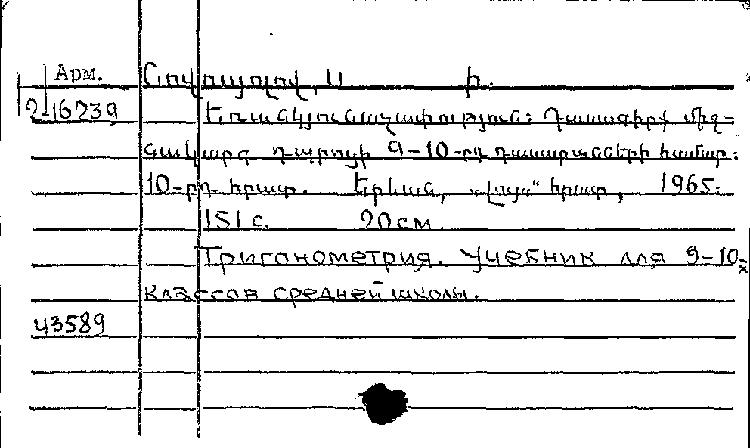 Арм. Նովոսյոլով, Ս ի.
2-16739 Եռանկյունաչափություն: Դասագիրք միջ-
նակարգ դպրոցի 9-10-րդ դասարանների համար:
10-րդ հրատ. Երևան, «Լույս» հրատ, 1965.
151 с. 20 см
Тригонометрия. Учебник для 9-10-х
классов средней школы.
43589